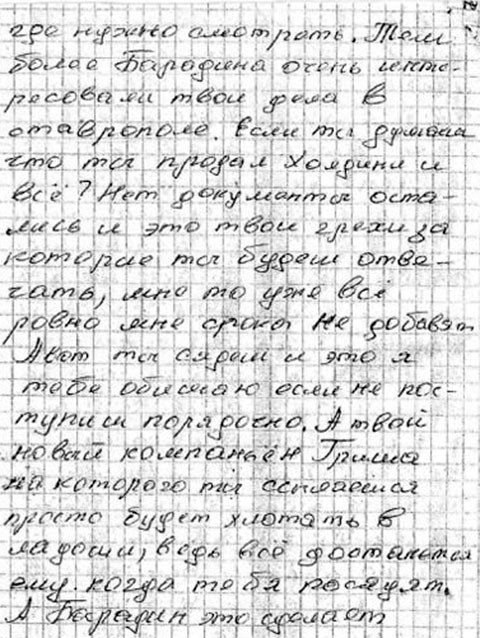 где нужно смотреть. Тем
более Барадина очень инте-
ресовали твои дела в
ставрополе. Если ты думаеш
что ты продал Холдинг и
всё? Нет документы оста-
лись и это твои грехи за
которые ты будеш отве-
чать, мне то уже всё
ровно мне срока не добавят
А вот ты сядеш и это я
тебе обещаю если не пос-
тупиш порядочно. А твой
новый компаньён Гриша
на которого ты ссылаешся
просто будет хлопать в
ладоши, ведь всё достанется
ему когда тебя посадят.
А Барадин это сделает